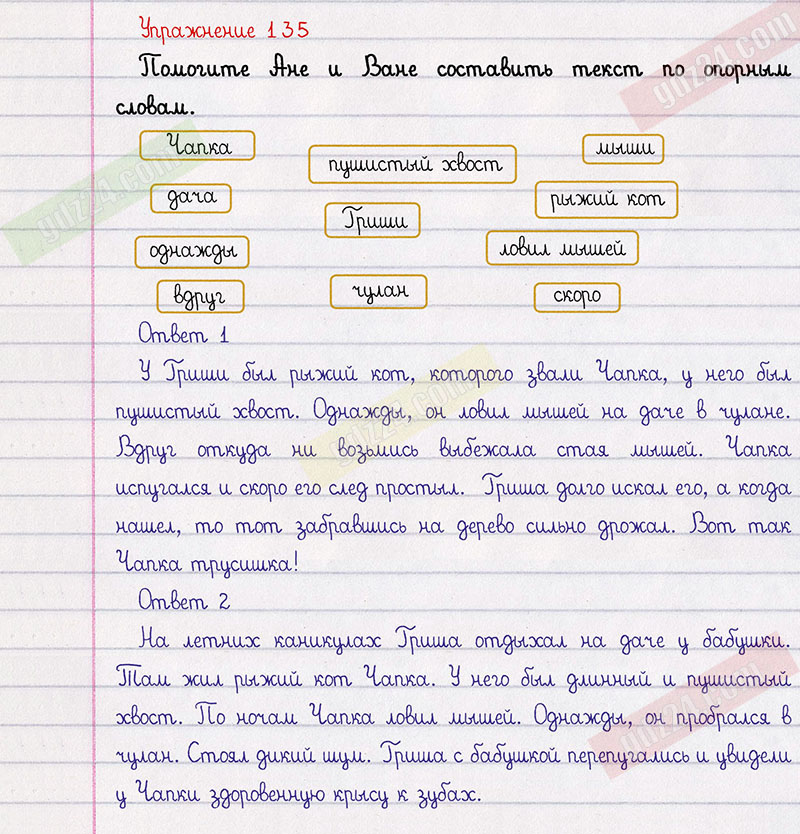 Упражнение 135
Помогите Ане и Ване составить текст по опорным
словам.
Чапка
пушистый хвост
мыши
дача
Гриши
рыжий кот
однажды
ловил мышей
вдруг
чулан
скоро
Ответ 1
У Гриши был рыжий кот, которого звали Чапка, у него был
пушистый хвост. Однажды, он ловил мышей на даче в чулане.
Вдруг откуда ни возьмись выбежала стая мышей. Чапка
испугался и скоро его след простыл. Гриша долго искал его, а когда
нашел, то тот забравшись на дерево сильно дрожал. Вот так
Чапка трусишка!
Ответ 2
На летних каникулах Гриша отдыхал на даче у бабушки.
Там жил рыжий кот Чапка. У него был длинный и пушистый
хвост. По ночам Чапка ловил мышей. Однажды, он пробрался в
чулан. Стоял дикий шум. Гриша с бабушкой перепугались и увидели
у Чапки здоровенную крысу к зубах.
gdz24.com
gdz24.com
gdz24.com
gdz24.com